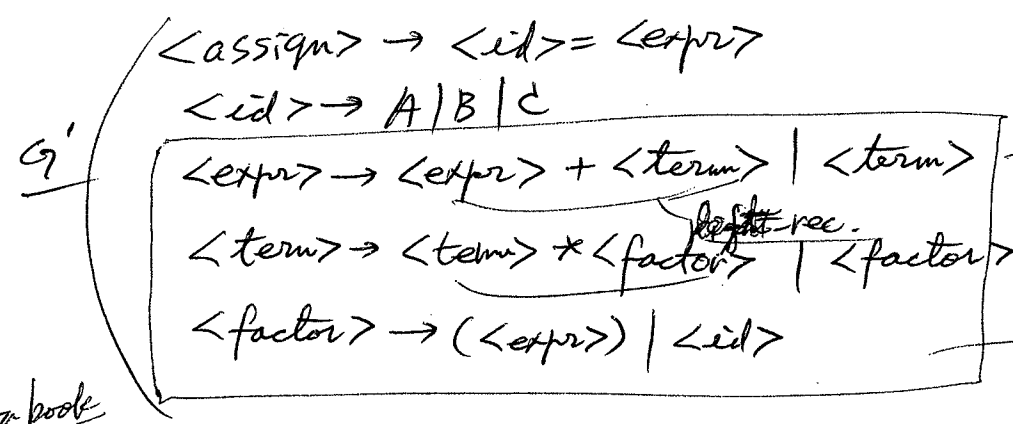 <assign> → <id> = <expr>
<id> → A | B | C
G'
<expr> → <expr> + <term> | <term>
-rec.
<term> → <term> * <factor> | <factor>
<factor> → (<expr>) | <id>
book